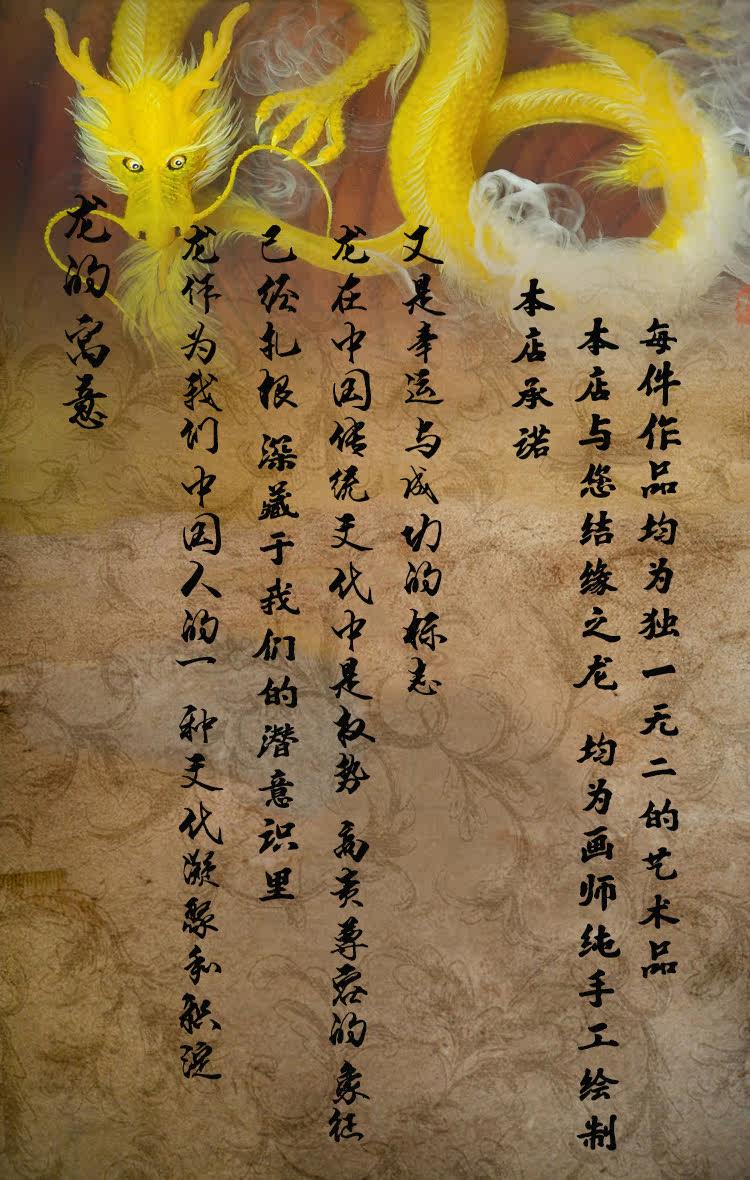 龙的寓意
龙作为我们中国人的一 种文化凝聚和积淀
已经扎根 深藏于我们的潜意识里
龙在中国传统文化中是权势 高贵尊荣的 象征
又是幸运与成功的标志
本店承诺
本店与您结缘之龙 均为画师纯手工绘制
每件作品均为独一无二的艺术品